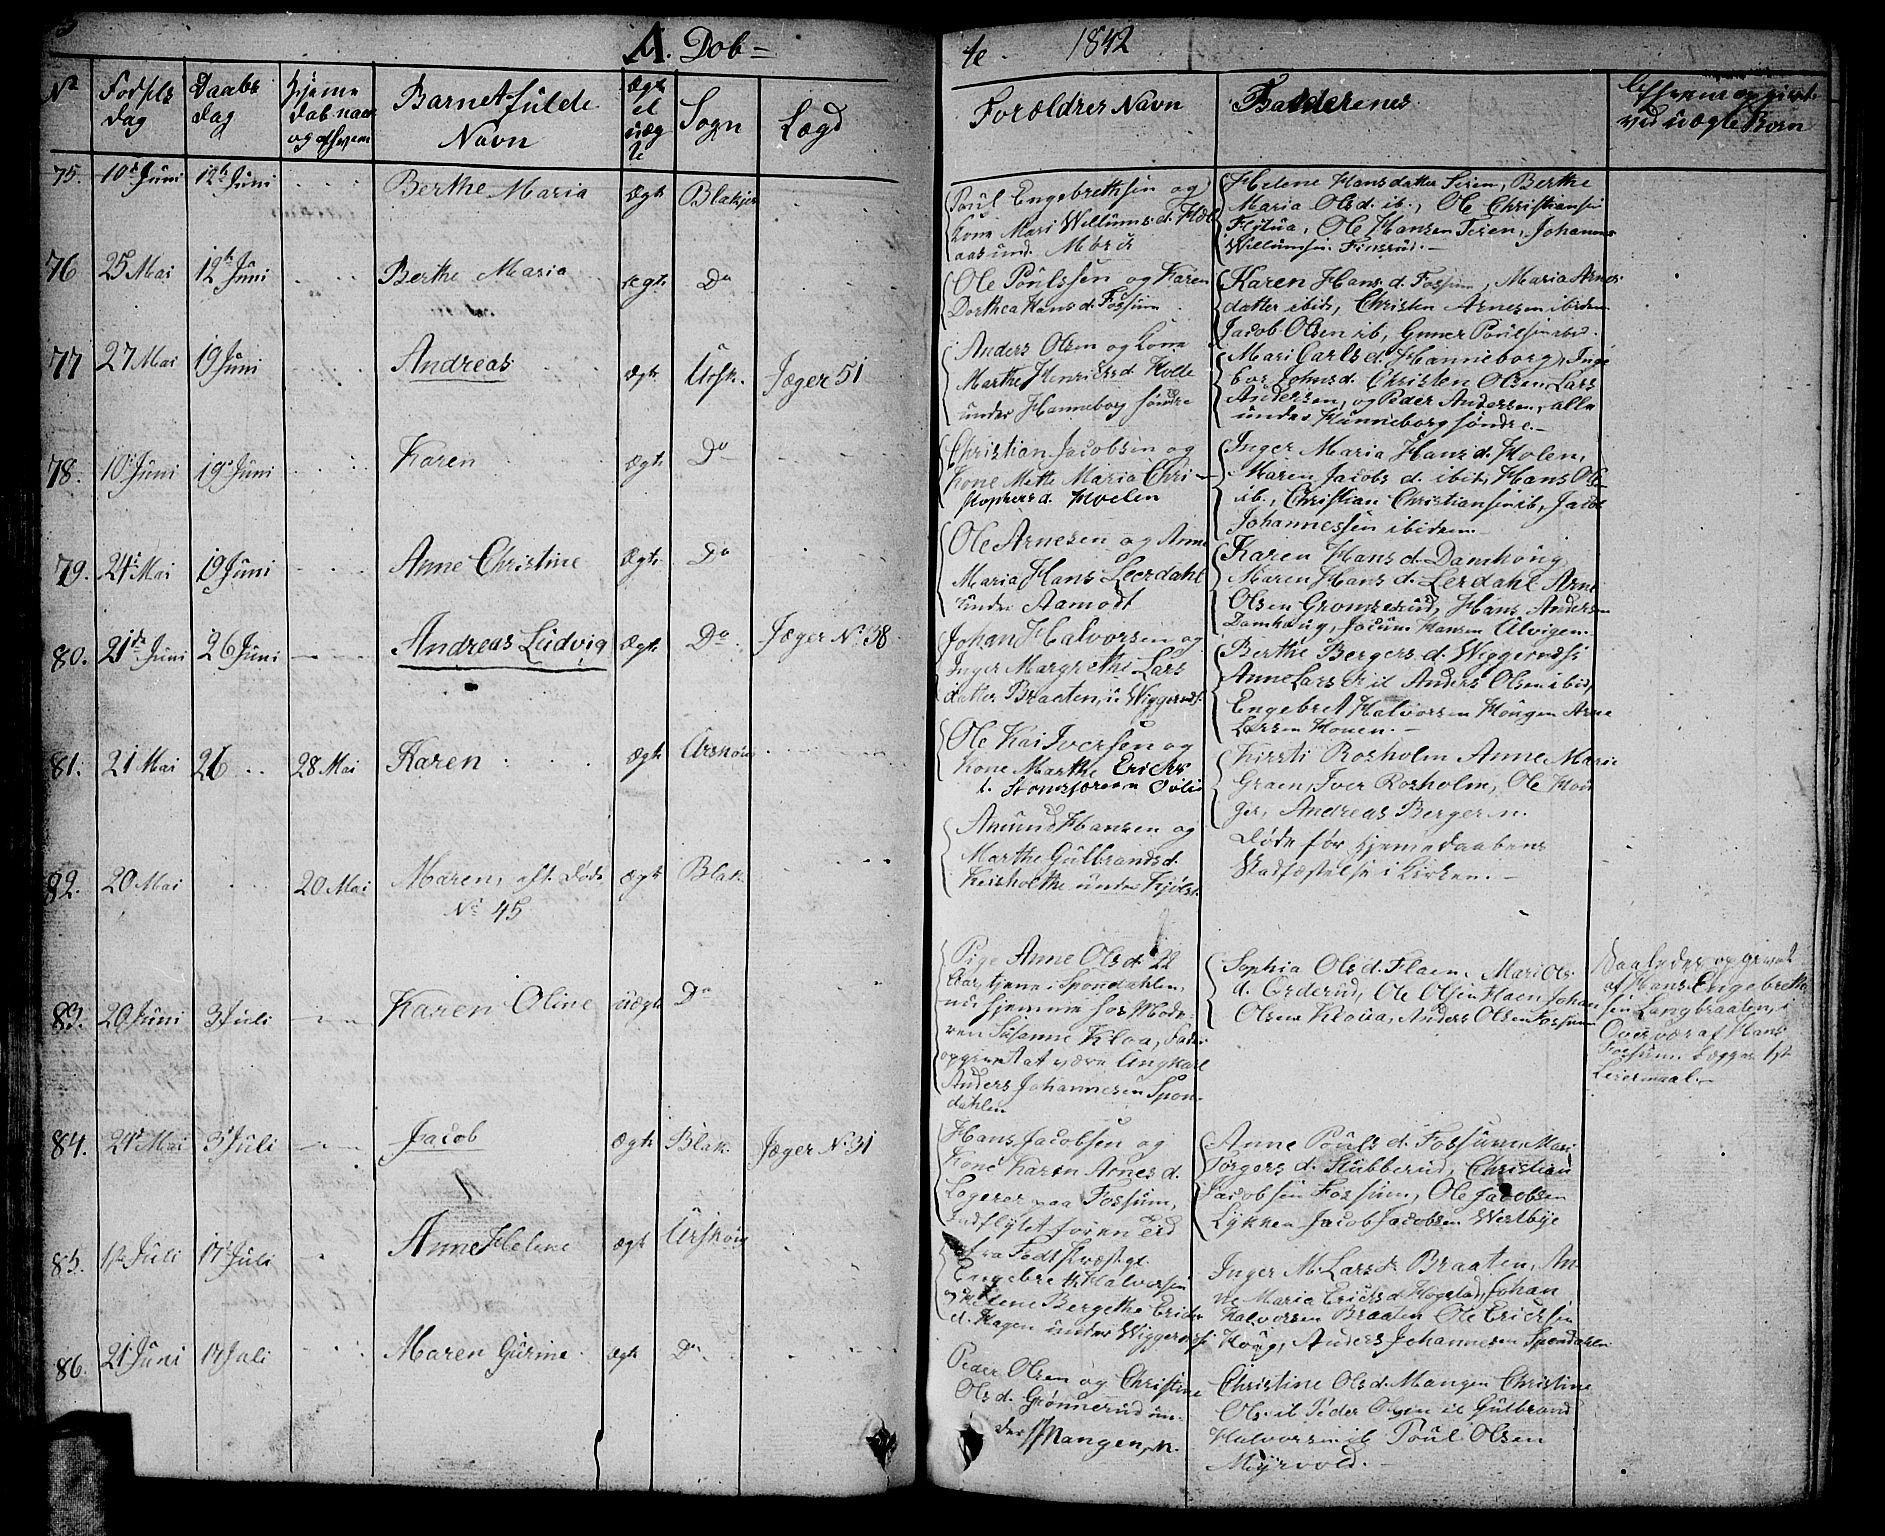 A. Døb-
te. 1842
No Fødsels dag Daabs dag Hjemme dab naar og af hvem Barnets fulde Navn Ægte el uægte Sogn Lægd Forældres Navn Faddernes
ved uægte Børn
75. 10de Juni 12te Juni Berthe Maria ægte Blakjer
Poul Engebrethsen og
Kone Mari Willumsd.
Helene Hansdatter Teien, Berthe
Maria Olsd. ib., Ole Christiansen
Ole Hansen Teien, Johannes
Willumsen Finsrud.-
76 25 Mai 12te Juni Berthe Maria ægte Do
Ole Poulssen og Karen
Dorthea Hansd. Fossum
Karen Hansd. Fossum, Maria Arnes
datter ibid, Christen Arnesen ibidem
Jacob Olsen ib, Gunner Poulsen ibid.
77 27 Mai 19 Juni Andreas ægte Ursk. Jæger 51
Anders Olsen og Kone
Marthe Henriksd.
under Hanneborg søndre
Mari Carlsd. Hanneborg, Inge
bor Johnsd. Christen Olsen Lars
Andersen, og Peder Andersen, alle
under Hanneborg søndre.-
78. 10de Juni 19de Juni Karen ægte Do
Christian Jacobsen og
Kone Mette Maria Chri-
stophersd. Moelen
Inger Maria Hansd. Molen,
Maren Jacobsd. ibid, Hans Olsen
ib., Christian Christiansen ib, Jacob
Johannessen ibidem.-
79. 24de Mai 19 Juni Anne Christine Ægte Do
Ole Arnesen og Anne
Maria Hans Leerdahl
under Aamodt
Karen Hansd. Damhoug
Maren Hansd. Lerdahl Arne
Olsen Grønserud, Hans Andersen
Damhaug, Jocum Hansen Ulvigen
80. 21de Juni 26 Juni Andreas Ludvig ægte Do. Jæger No. 38
Johan Halvorsen og
Inger Margrethe Lars
datter Braaten, u Wiggernæs
Berthe Bergersd. Wiggernæs
Anne Larsd. ib Anders Olsen ibid,
Engebret Halvorsen Hougen Arne
Larsen Houen.-
81. 21 Mai 26 28 Mai Karen ægte Urskoug
Ole Kai Iversen og
Kone Marthe Erichs
Kirsti Rosholm Anne Marie
Graen, Iver Rosholm, Ole Hou
ger, Andreas Bergersen.
82. 20 Mai 20 Mai Maren, cfr. Døde ægte Blak.
No. 45
Amund Hansen og
Marthe Gulbrandsd.
under Kjøls.
Døde før hjemmedaabens
Stadfæstelse i Kirken.-
83. 20 Juni 3 Juli Karen Oline uægte Do
Pige Anne Olsd. 22
Aar, tjene i Spondahlen,
nu hjemme hos Mode-
ren Susanne Kloa, Fader
opgivet at være Ungkarl
Anders Johannesen Spon-
dahlen
Sophia Olsd. Flaen, Mari Ols
d. Orderud, Ole Olsen Haen Johan
Olsen Kloua, Anders Olsen Fossum
Saaledes opgivet
af Hans Engebreth-
sen Langbraaten, i
Overvær af Hans
Fossum. Begges 1st
Leiermaal.-
84. 24de Mai 3de Juli Jacob ægte Blak. Jæger No. 31
Hans Jacobsen og
Kone Karen Arnesd.
Logerer paa Fossum,
Indflytet for en Tid
fra Fods
Anne Poulsd. Fossum Mari
Torgersd. Stubberud, Christian
Jacobsen Fossum, Ole Jacobsen
Lykken Jacob Jacobsen Westbye
85. 1ste Juli 17 Juli Anne Helene ægte Urskoug
Engebreth Halvorsen
og Helene Bergethe Erichs
d. Hagen under Wiggernæs
Inger M. Larsd. Braaten, An-
ne Maria Erichsd. Høgelad, Johan
Halvorsen Braaten Ole Erichsen
Houg, Anders Johannesen Spondahlen
86. 21 Juni 17 Juli Maren Gurine ægte Do
Peder Olsen og Christine
Olsd. Grønnerud un-
der Mangen, N.
Christine Olsd. Mangen Christine
Ols. ib Peder Olsen ib Gulbrand
Halvorsen ib Poul Olsen
Myrvold.-